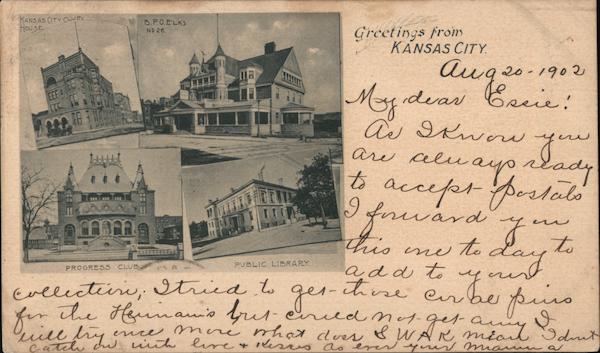 KANSAS CITY CLUB HOUSE
B.P.O. ELKS
NO 26
PROGRESS CLUB
PUBLIC LIBRARY
Greetings from
KANSAS CITY.
Aug 20-1902
My dear Essie!
As I Know you
are always ready
to accept Postals
I forward you
this one to day to
add to your
collection; I tried to get those coral pins
for the but could not get any I
will try once more what does S W A K mean I dont
catch on with love & kisses as ever your Mamma